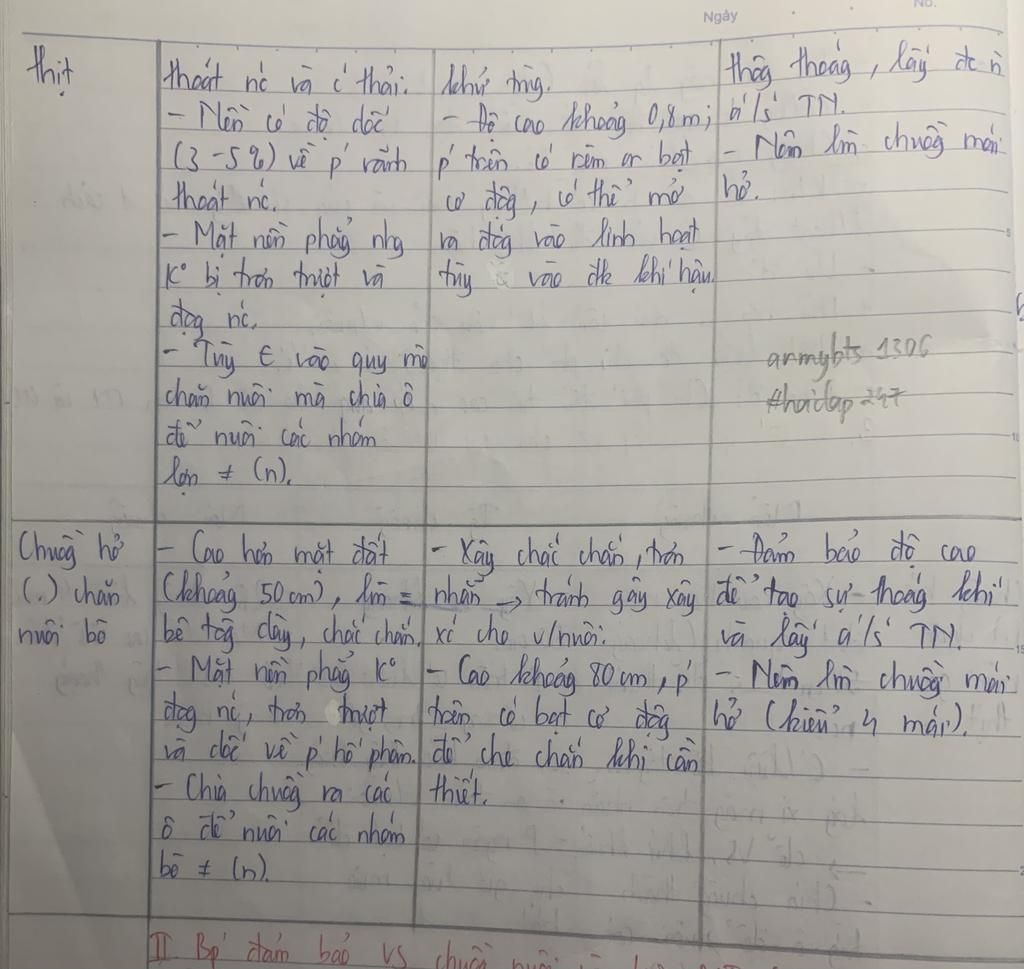 Ngày
No.
thịt
thoát nc' và c' thải.
- Nền có độ dốc
(3-5%) về p' rãnh
thoát nc'.
- Mặt nền phẳg nhg
K° bị trơn trượt và
đọg nc'.
- Tùy ∈ vào quy mô
chăn nuôi mà chia ô
để nuôi các nhóm
lợn ≠ (n).
khử trùg.
- Độ cao khoảg 0,8m;
p' trên có rèm or bạt
cơ độg, có thể mở
ra đóg vào linh hoạt
tùy vào đk khí hậu.
thôg thoág, lấy đc n̄
á/s' TN.
- Nên làm chuồg mái
hở.
armybts 1306
#hoidap247
Chuồg hở
(.) chăn
nuôi bò
- Cao hơn mặt đất
(khoảg 50cm), làm =
bê tôg dày, chắc chắn.
- Mặt nền phẳg K°
đọg nc', trơn trượt
và dốc về p' hố phân.
- Chia chuồg ra các
ô để nuôi các nhóm
bò ≠ (n).
- Xây chắc chắn, trơn
nhẵn → tránh gây xây
xỉ cho v/nuôi.
- Cao khoảg 80cm, p'
trên có bạt cơ độg
để che chắn khi cần
thiết.
- Đảm bảo độ cao
để tạo sự thoág khí
và lấy á/s' TN.
- Nên làm chuồg mái
hở (kiểu 4 mái).
II Bp' đảm bảo VS chuồg nuôi